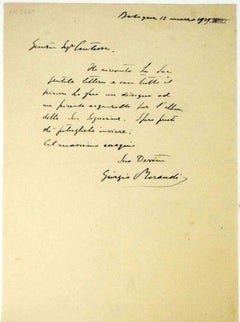 Bologna 12 marzo 1939 XVII
Gent. Sig. Cantoni
Ho ricevuto la Sua
gentile lettera e con tutto il
piacere Le farò un disegno od
un piccolo acquerello per l'album
della Sua Signorina. Spero presto
di poterglielo inviare.
Col massimo ossequio
Suo Devmo
Giorgio Morandi